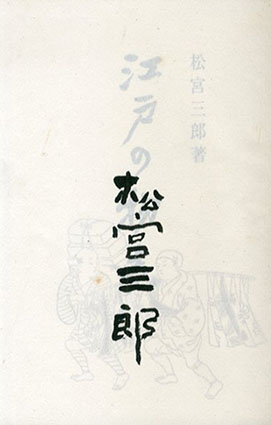 松宮三郎著
江戸の
松宮三郎